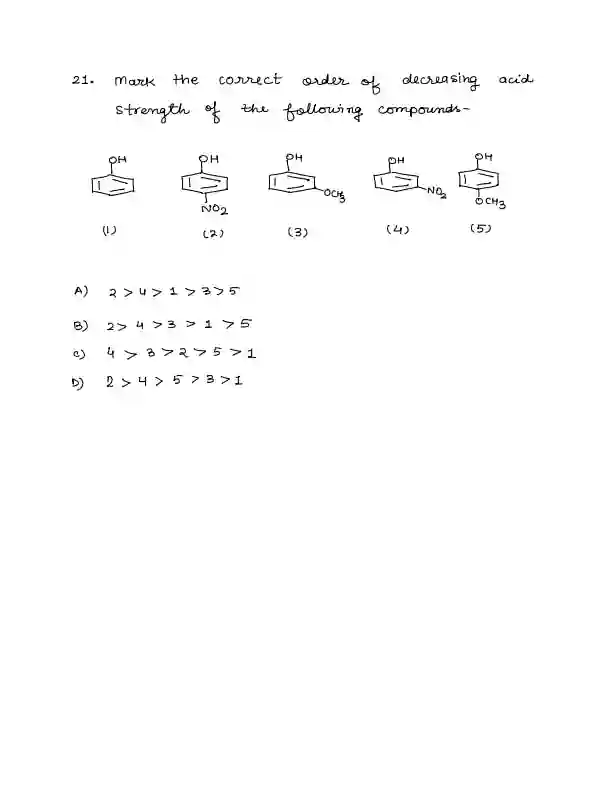 21. Mark the correct order of decreasing acid
strength of the following compounds-
OH OH OH OH OH
NO2 OCH3 NO2 OCH3
(1) (2) (3) (4) (5)
A) 2 > 4 > 1 > 3 > 5
B) 2 > 4 > 3 > 1 > 5
C) 4 > 3 > 2 > 5 > 1
D) 2 > 4 > 5 > 3 > 1